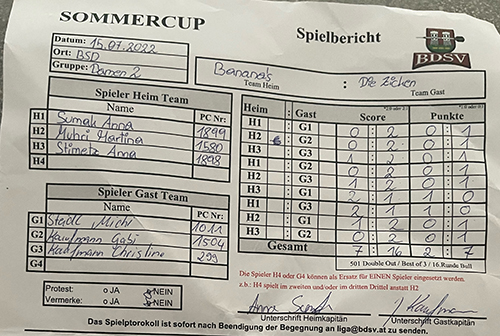 SOMMERCUP
Spielbericht
BDSV
Datum: 15.07.2022
Ort: BSD
Gruppe: Damen 2
Banana's : Die Zicken
Team Heim Team Gast
Spieler Heim Team
Name PC Nr:
H1 Sumah Anna 1899
H2 Muhri Martina 1580
H3 Stimetz Anna 1898
H4
Spieler Gast Team
Name PC Nr:
G1 Stadl Michi 1011
G2 Kaufmann Gabi 1504
G3 Kaufmann Christine 299
G4
Heim Gast Score Punkte
H1 : G1 0 : 2 0 : 1
H2 : G2 0 : 2 0 : 1
H3 : G3 1 : 2 0 : 1
H1 : G2 0 : 2 0 : 1
H2 : G3 1 : 2 0 : 1
H3 : G1 2 : 1 1 : 0
H1 : G3 2 : 1 1 : 0
H2 : G1 1 : 2 0 : 1
H3 : G2 0 : 2 0 : 1
Gesamt 7 : 16 2 : 7
501 Double Out / Best of 3 / 16.Runde Bull
Die Spieler H4 oder G4 können als Ersatz für EINEN Spieler eingesetzt werden.
z.b.: H4 spielt im zweiten und/oder im dritten Drittel anstatt H2
Protest: o JA o NEIN
Vermerke: o JA o NEIN
Unterschrift Heimkapitän Unterschrift Gastkapitän
Das Spielptorokoll ist sofort nach Beendigung der Begegnung an liga@bdsv.at zu senden.